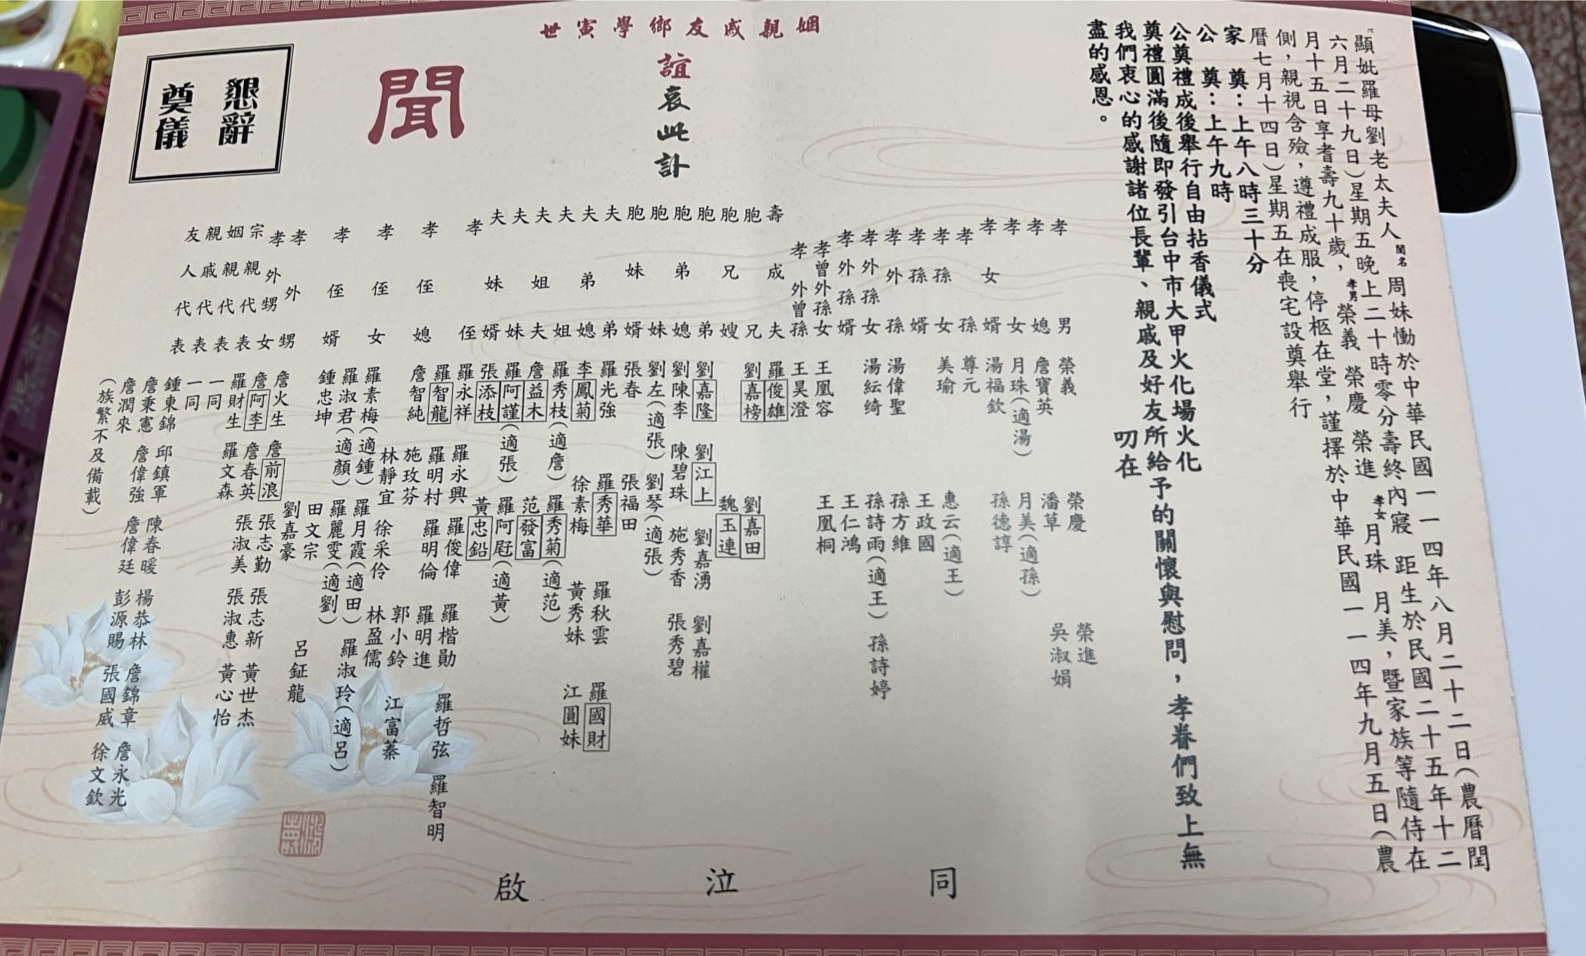 顯妣羅母劉老太夫人閨名周妹慟於中華民國一一四年八月二十二日(農曆閏
六月二十九日)星期五晚上二十時零分壽終內寢 距生於民國二十五年十二
月十五日享耆壽九十歲,孝男榮義 榮慶 榮進 孝女月珠 月美,暨家族等隨侍在
側,親視含殮,遵禮成服,停柩在堂,謹擇於中華民國一一四年九月五日(農
曆七月十四日)星期五在喪宅設奠舉行
家 奠:上午八時三十分
公 奠:上午九時
公奠禮成後舉行自由拈香儀式
奠禮圓滿後隨即發引台中市大甲火化場火化
我們衷心的感謝諸位長輩、親戚及好友所給予的關懷與慰問,孝眷們致上無
盡的感恩。
叨在
姻親戚友鄉學寅世
誼哀此訃
聞
懇辭
奠儀
孝男 榮義 榮慶 榮進
孝媳 詹寶英 潘草 吳淑娟
孝女 月珠(適湯) 月美(適孫)
孝女婿 湯福欽 孫德諄
孝孫 尊元
孝孫女 美瑜 惠云(適王)
孝孫婿 王政國
孝外孫 湯偉聖 孫方維
孝外孫女 湯紜綺 孫詩雨(適王) 孫詩婷
孝外孫婿 王仁鴻
孝曾外孫女 王凰容 王凰桐
孝外曾孫 王昊澄
壽成夫 羅俊雄
胞兄 劉嘉榜 劉嘉田
胞兄嫂 魏玉連
胞弟 劉嘉隆 劉江上 劉嘉湧 劉嘉權
胞弟媳 劉陳李 陳碧珠 施秀香 張秀碧
胞妹 劉左(適張) 劉琴(適張)
胞妹婿 張春 張福田
夫弟 羅光強 羅秀華 羅秋雲 羅國財
夫弟媳 李鳳菊 徐素梅 黃秀妹 江圓妹
夫姐 羅秀枝(適詹) 羅秀菊(適范)
夫姐夫 詹益木 范發富
夫妹 羅阿謹(適張) 羅阿屘(適黃)
夫妹婿 張添枝 黃忠鉛
孝侄 羅永祥 羅永興 羅俊偉 羅楷勛 羅哲弦 羅智明
羅智龍 羅明村 羅明倫 羅明進
孝侄媳 詹智純 施玫芬 郭小鈴 江富蓁
林靜宜 徐采伶 林盈儒
孝侄女 羅素梅(適鍾) 羅月霞(適田) 羅淑玲(適呂)
羅淑君(適顏) 羅麗雯(適劉)
孝侄婿 鍾忠坤 田文宗 呂鉦龍
劉嘉豪
孝外甥 詹火生 詹前浪 張志勤 張志新 黃世杰
孝外甥女 詹阿李 詹春英 張淑美 張淑惠 黃心怡
宗親代表 羅財生 羅文森
姻親代表 一同
親戚代表 一同
友人代表 鍾東錦 邱鎮軍 陳春暖 楊恭林 詹錦章 詹永光
詹秉憲 詹偉強 詹偉廷 彭源賜 張國威 徐文欽
詹潤來
(族繁不及備載)
同泣啟